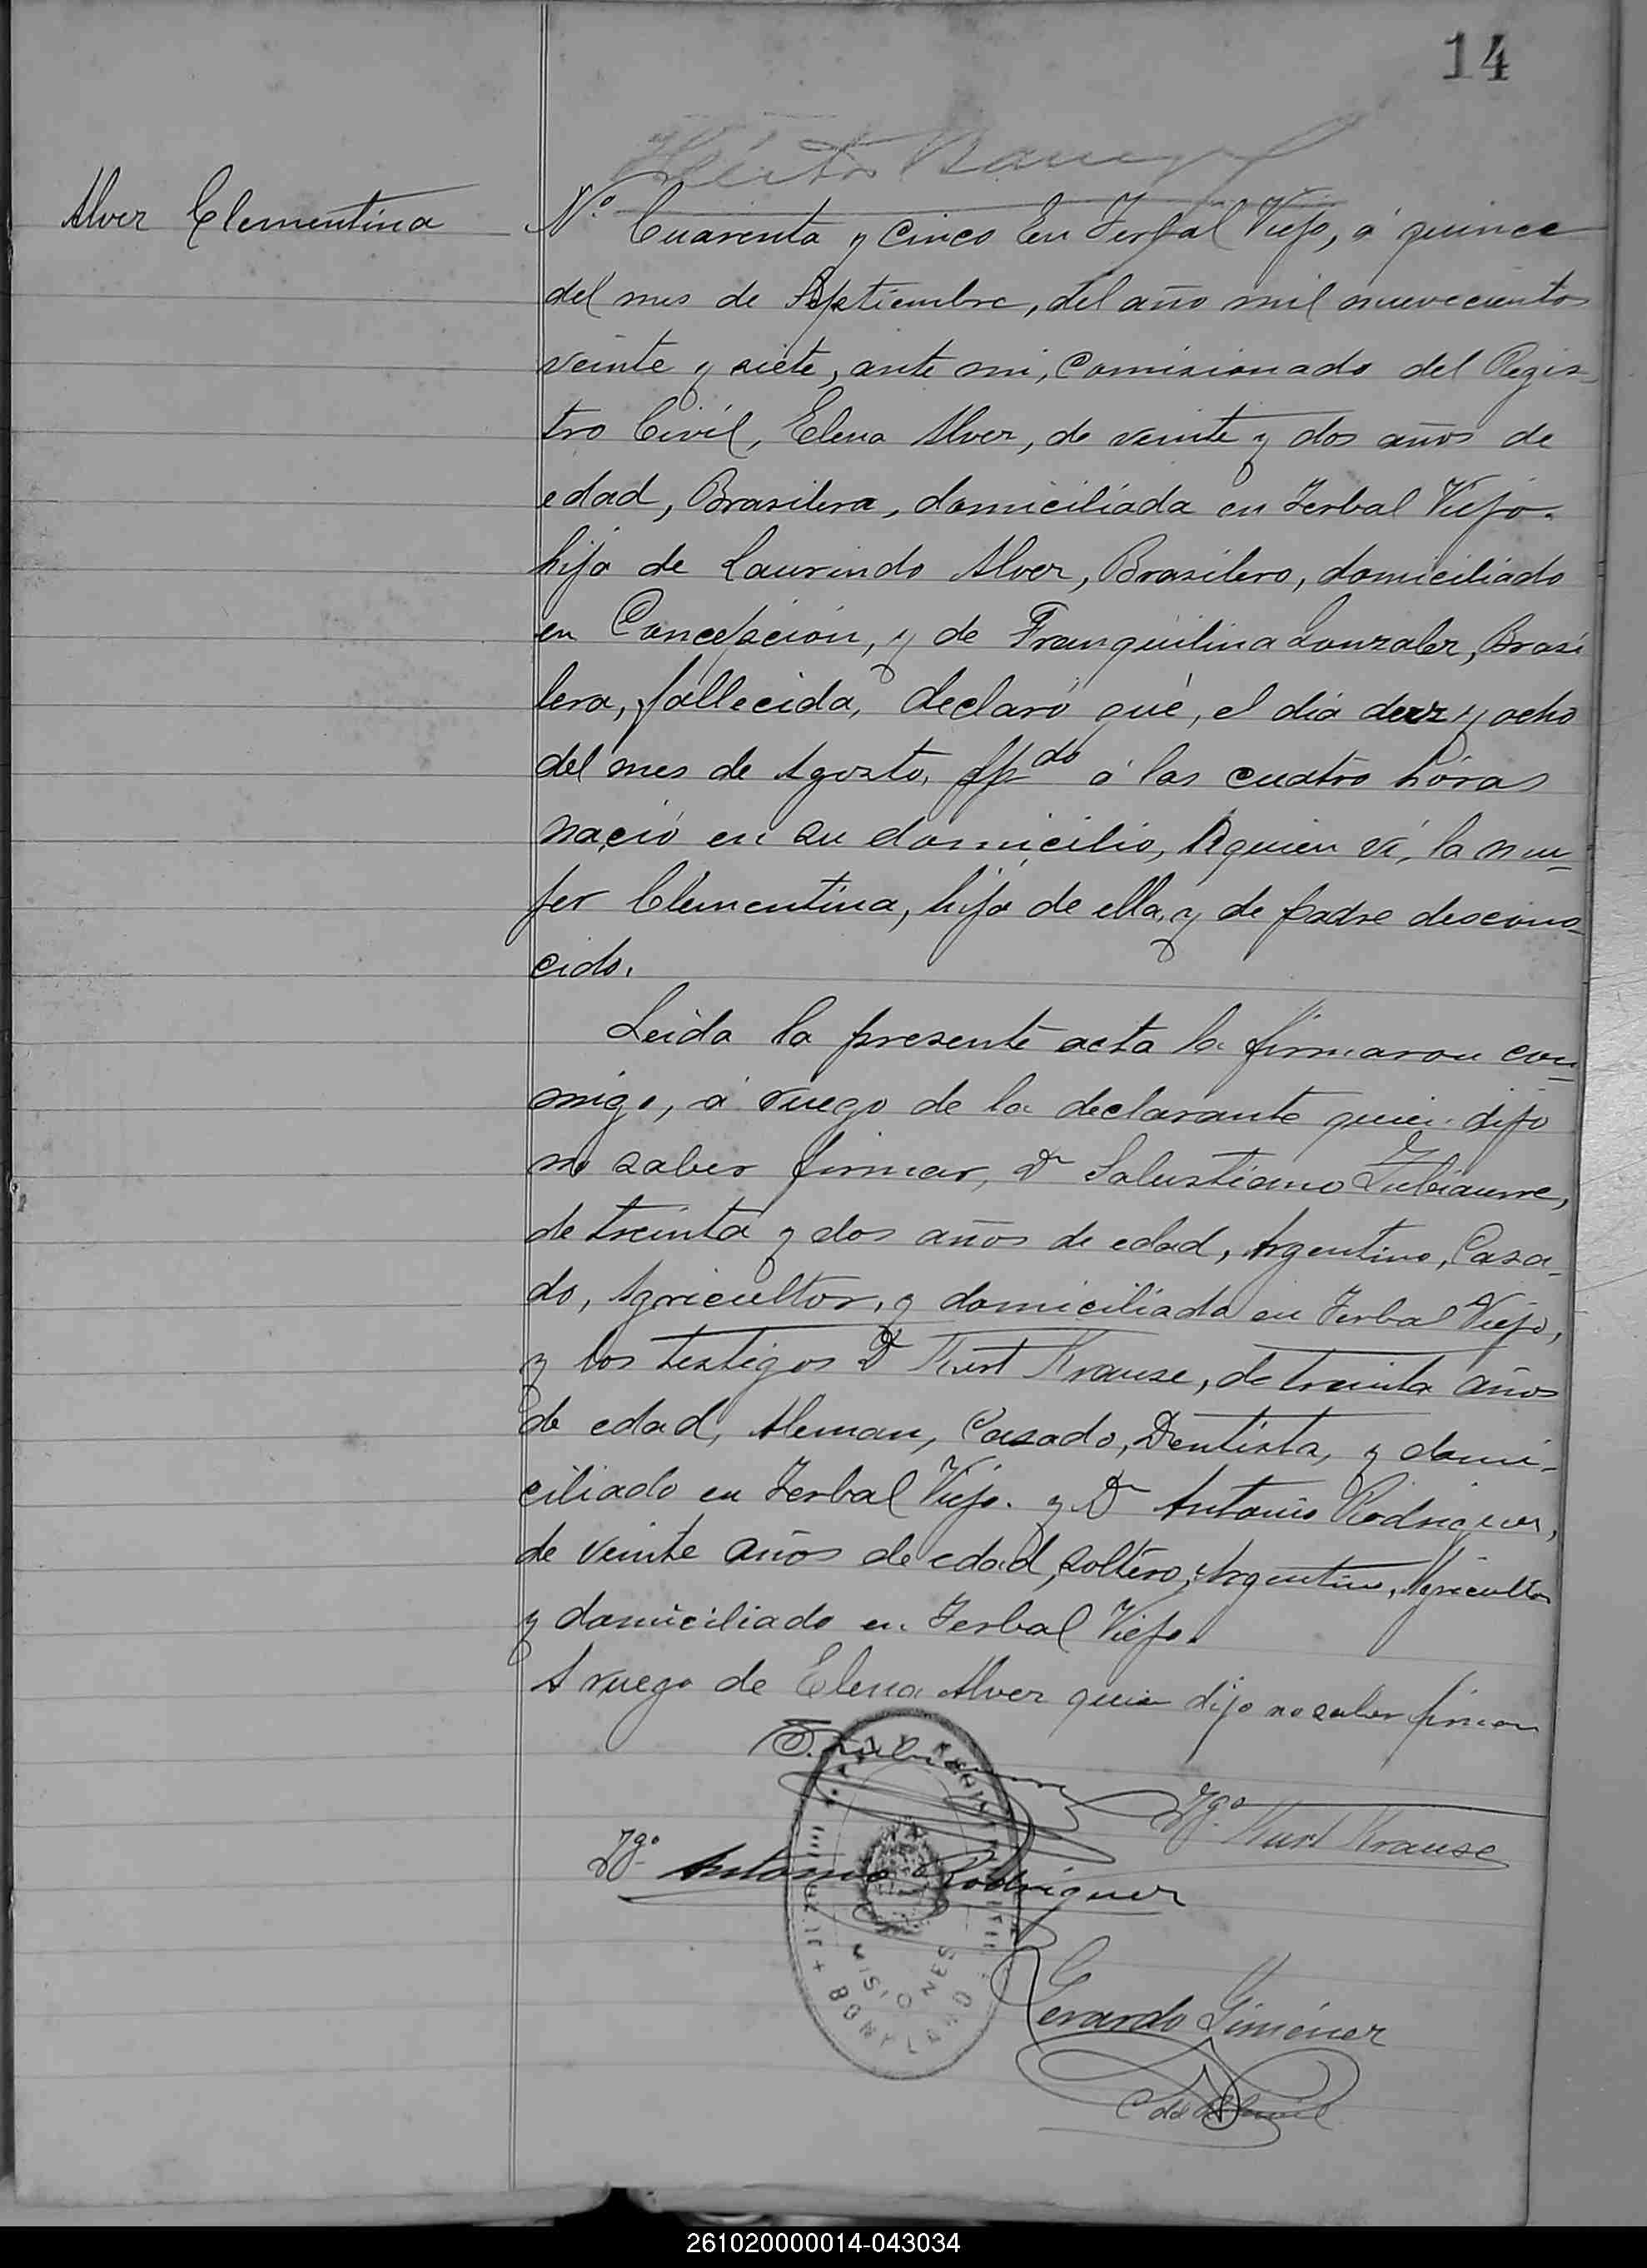 14
Alver Clementina
Nº Cuarenta y cinco En Yerbal Viejo, á quince
del mes de Septiembre, del año mil nuevecientos
veinte y siete, ante mi, Comisionado del Regis-
tro Civil, Elena Alver, de veinte y dos años de
edad, Brasilera, domiciliada en Yerbal Viejo.
hija de Laurindo Alver, Brasilero, domiciliado
en Concepción, y de Franquilina Gonzalez, Brasi
lera, fallecida, declaró qué, el dia diez y ocho
del mes de Agosto, ppdo á las cuatro hóras
nació en su domicilio, A quien ví, la mu-
jer Clementina, hija de ella, y de padre descono-
cido.
Leida la presente acta la firmaron con-
migo, á ruego de la declarante quien dijo
no saber firmar, Dn Salustiano Zubiaurre,
de treinta y dos años de edad, Argentino, Casa-
do, Agricultor, y domiciliado en Yerbal Viejo,
y los testigos D Kurt Krause, de treinta años
de edad, Aleman, Casado, Dentista, y domi-
ciliado en Yerbal Viejo. y Dn Antonio Rodriguez,
de veinte años de edad, soltero, Argentino, Agricultor
y domiciliado en Yerbal Viejo.
A ruego de Elena Alver quien dijo no saber firmar
Tgº Kurt Krause
Tgº Antonio Rodriguez
MISIONES
BONPLAND
Gerardo Giménez
261020000014-043034